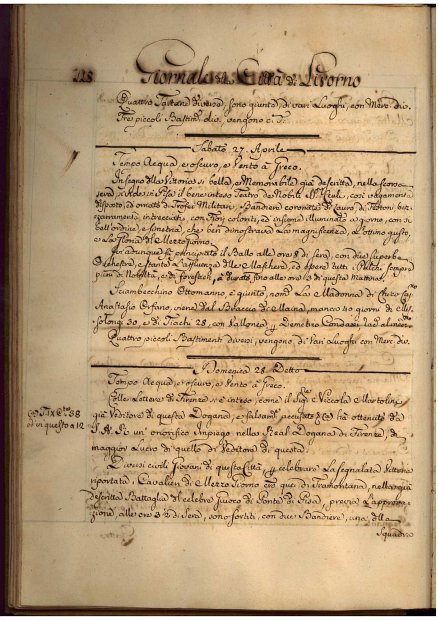 118 Giornale della Città di Livorno
Quattro Tartane diverse, sono giunte da vari Luoghi, con Merc. div.
Tre piccoli Bastim.ti div. vengono
Sabato 27 Aprile
Tempo Acqua, e oscuro, e Vento a Greco.
In segno della Vittoria sì bella, e Memorabile già descritta, nella scorsa
sera, si Aderì in Pisa il ben inteso Teatro de Nobili così vagamente
disposto, ed ornato di Trofei Militari, Bandiere, coronate di Lauro, di Festoni
intrecciati, con Fiori coloriti, ed insieme illuminato a giorno, con sì
bell'ordine, e simetria, che ben dimostrava La magnificenza, L'ottimo gusto,
e La Gloria di Mezzogiorno.
Fu adunque principiato il Ballo alle ore 8 di sera, con due superbe
Orchestre, e stante L'affluenza delle Maschere, ed essere tutti i Palchi sempre
pieni di Nobiltà, e di Forestieri, è durato fino alle ore 13 di questa mattina.
Sciambecchino Ottomanno, è giunto, nom.to La Madonna di
Anastasio Orfano, viene dal Braccio di Maina, manco 40 giorni e di
30, e di 28, con Vallonea
Quattro piccoli Bastimenti diversi, vengono di Vari Luoghi con Merc. div.
Domenica 28 Detto
Tempo Acqua, e oscuro, e Vento a Greco.
Colle Lettere di Firenze, si è inteso, come il Sig.re Niccola Martolini
già Veditore di questa Dogana, e falsam.te accusato ha ottenuto da
S. A. R. un onorifico Impiego nella Real Dogana di Firenze, di
maggior Lucro di quello di Veditore di questa.
ed in questo a 12
I vari civili Giovani di questa Città, per celebrare La segnalata Vittoria
riportata, i Cavalieri di Mezzo Giorno e quei di Tramontana, nella già
descritta Battaglia del celebre giuoco di Ponte di Pisa, previa L'approva-
zione, alle ore 3 1/2 di Sera, sono sortiti, con due Bandiere, una della
Squadra